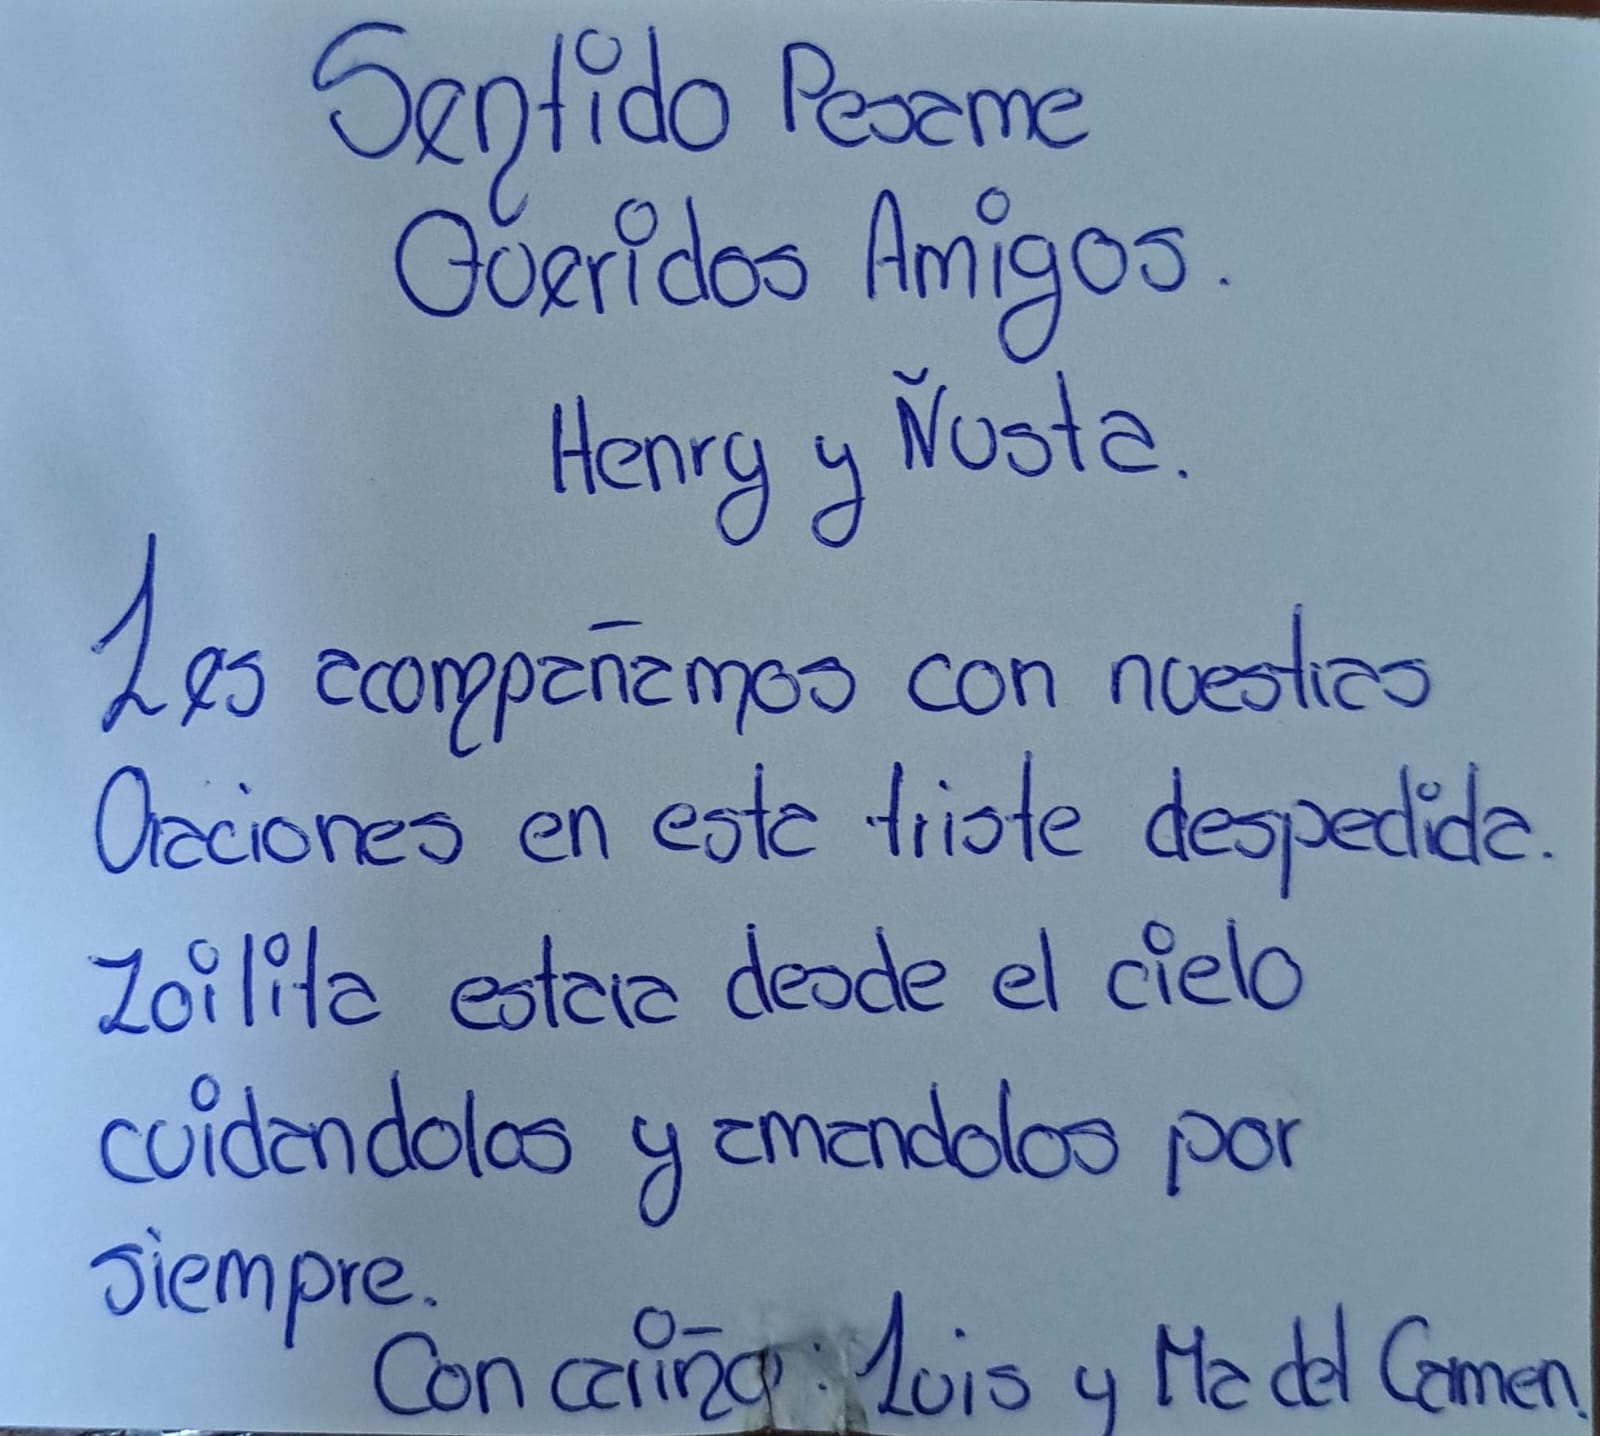 Sentido Pesame
Queridos Amigos.
Henry y Ñusta.
Les acompañamos con nuestras
Oraciones en esta triste despedida.
Zoilita estara desde el cielo
cuidandolos y amandolos por
siempre.
Con cariño: Luis y Ma del Carmen.